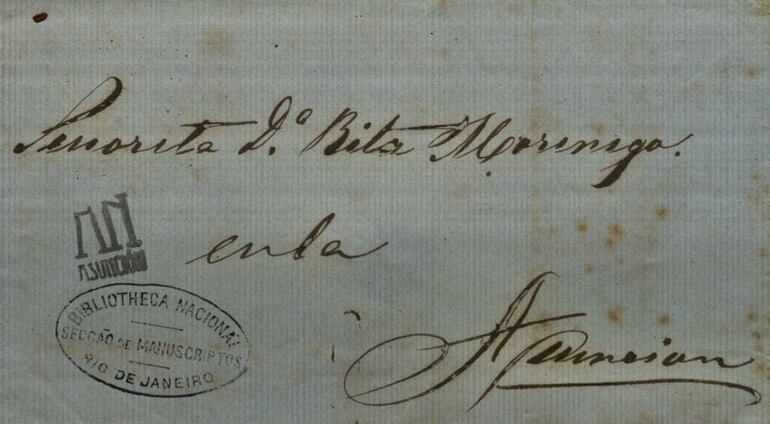 Señorita D.ª Rita Morinigo.
AN
ASUNCIÓN
en la
BIBLIOTHECA NACIONAL
SECÇÃO DE MANUSCRIPTOS
RIO DE JANEIRO
Asuncion